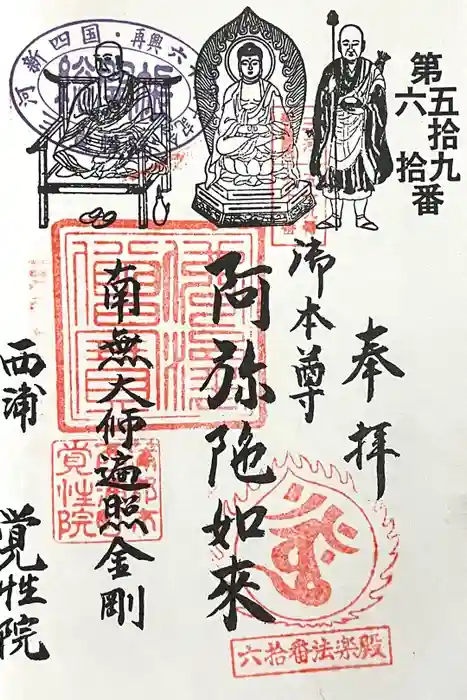 第五拾九
六拾番
奉拝
御本尊
阿弥陀如來
南無大师遍照金剛
西浦 覚性院
佛法僧寳
覚性院
六拾番法楽殿
河新四国・再興六